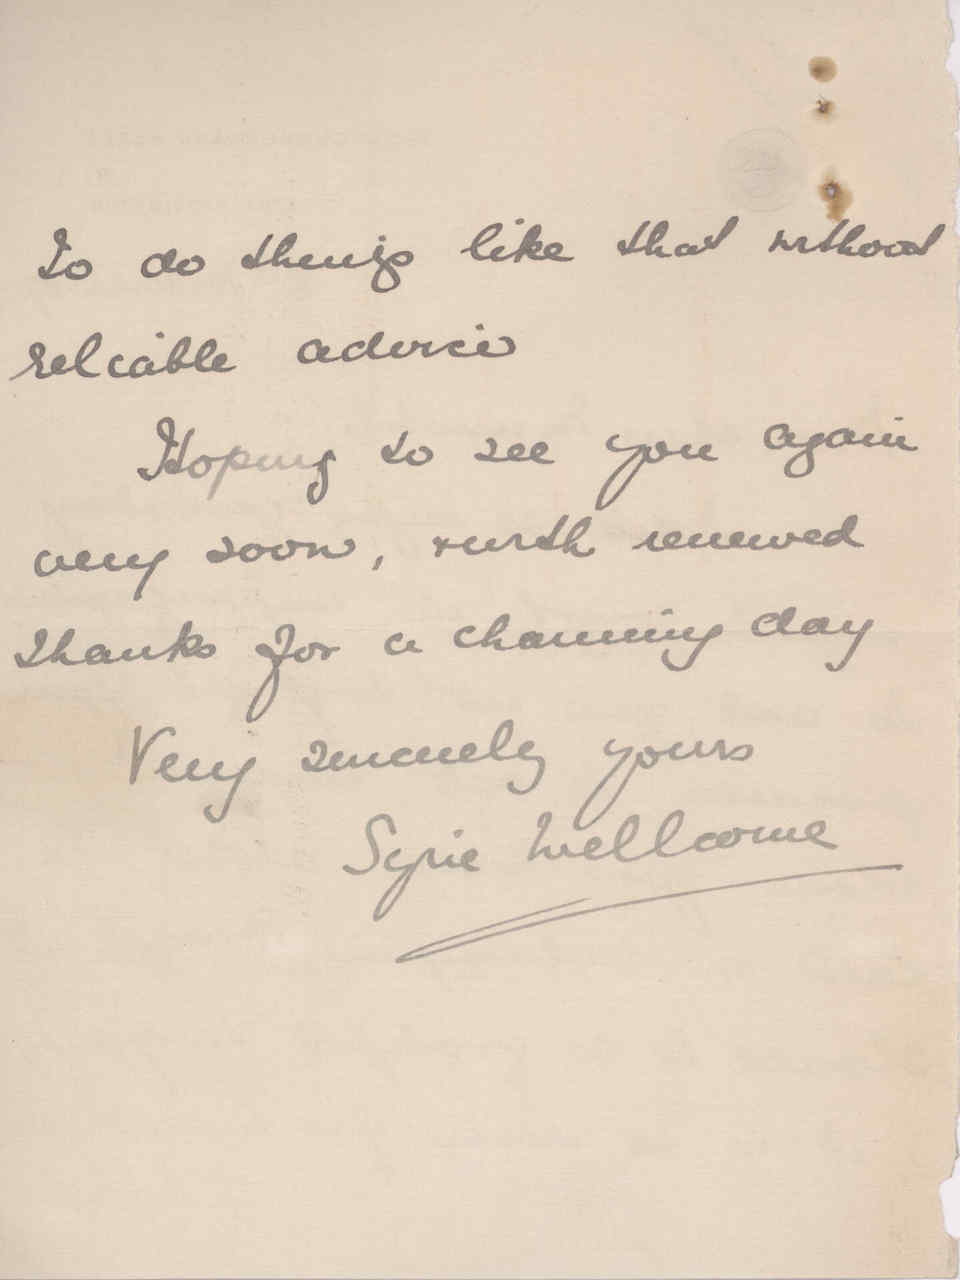 to do things like that without
reliable advice
Hoping to see you again
very soon, with renewed
thanks for a charming day
Very sincerely yours
Syrie Wellcome